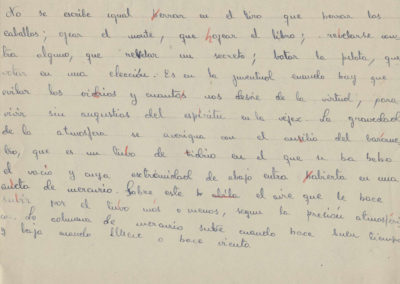 No se escribe igual errar en el tiro que herrar los
caballos; ojear el monte, que hojear el libro; rebelarse con
tra alguno, que revelar un secreto; botar la pelota, que
votar en una elección. Es en la juventud cuando hay que
evitar los vicios y cuantos nos desvíe de la virtud, para
vivir sin angustias del espíritu en la vejez. La gravedad
de la atmosfera se averigua con el auxilio del baróme
tro, que es un tubo de vidrio en el que se ha hebo
el vacío y cuya extremidad de abajo entra abierta en una
cubeta de mercurio. Sobre este el aire que le hace
subir por el tubo más o menos, según la presión atmosféri
ca. La columna de mercurio sube cuando hace buen tiempo
y baja cuando llueve o hace viento